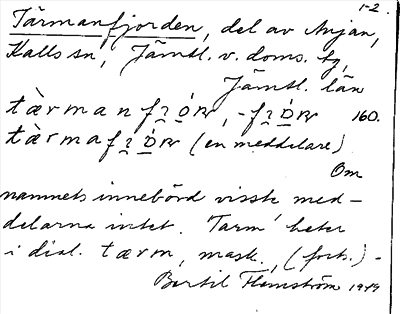 1-2.
Tärmanfjorden, del av Anjan,
Kalls sn, Jämtl. v. doms. tg,
Jämtl. län
160.
(en meddelare)
Om
namnets innebörd visste med-
delarna intet. 'Tarm' heter
i dial. tærm, mask., (forts.) -
Bertil Flemström 1949